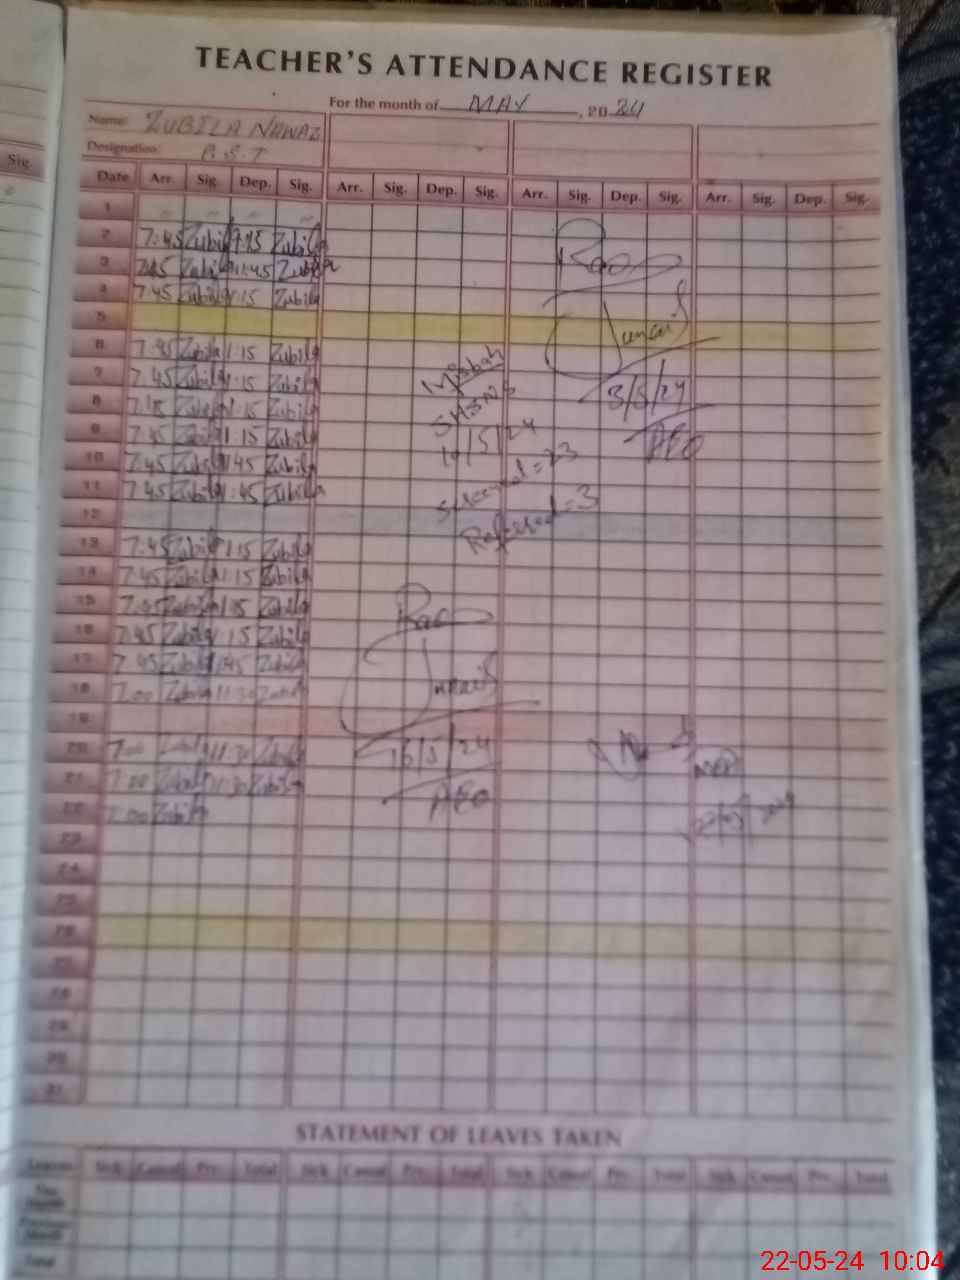 TEACHER'S ATTENDANCE REGISTER
For the month of MAY, 2024
Name: ZUBILA NAWAZ
Designation:
Sig.
Date Arr. Sig. Dep. Sig. Arr. Sig. Dep. Sig. Arr. Sig. Dep. Sig. Arr. Sig. Dep. Sig.
1
2 7:45 Zubila 1:15 Zubila
3 7:45 Zubila 11:45 Zubila
4 7:45 Zubila 1:15 Zubila
5
6 7:45 Zubila 1:15 Zubila
7 7:45 Zubila 1:15 Zubila
8 7:45 Zubila 1:15 Zubila
9 7:45 Zubila 1:15 Zubila
10 7:45 Zubila 1:45 Zubila
11 7:45 Zubila 1:45 Zubila
12
13 7:45 Zubila 1:15 Zubila
14 7:45 Zubila 1:15 Zubila
15 7:45 Zubila 1:15 Zubila
16 7:45 Zubila 1:15 Zubila
17 7:45 Zubila 11:45 Zubila
18 7:00 Zubila 11:30 Zubila
19
20 7:00 Zubila 11:30 Zubila
21 7:00 Zubila 11:30 Zubila
22 7:00 Zubila
23
24
25
26
27
28
29
30
31
Rao
Junaid
3/5/24
AEO
Misbah
SH&NS
/5/24
Screened = 23
Refered = 3
Rao
Junaid
16/5/24
AEO
STATEMENT OF LEAVES TAKEN
Leaves Sick Casual Prv. Total Sick Casual Prv. Total Sick Casual Prv. Total Sick Casual Prv. Total
This Month
Previous Month
Total
22-05-24 10:04